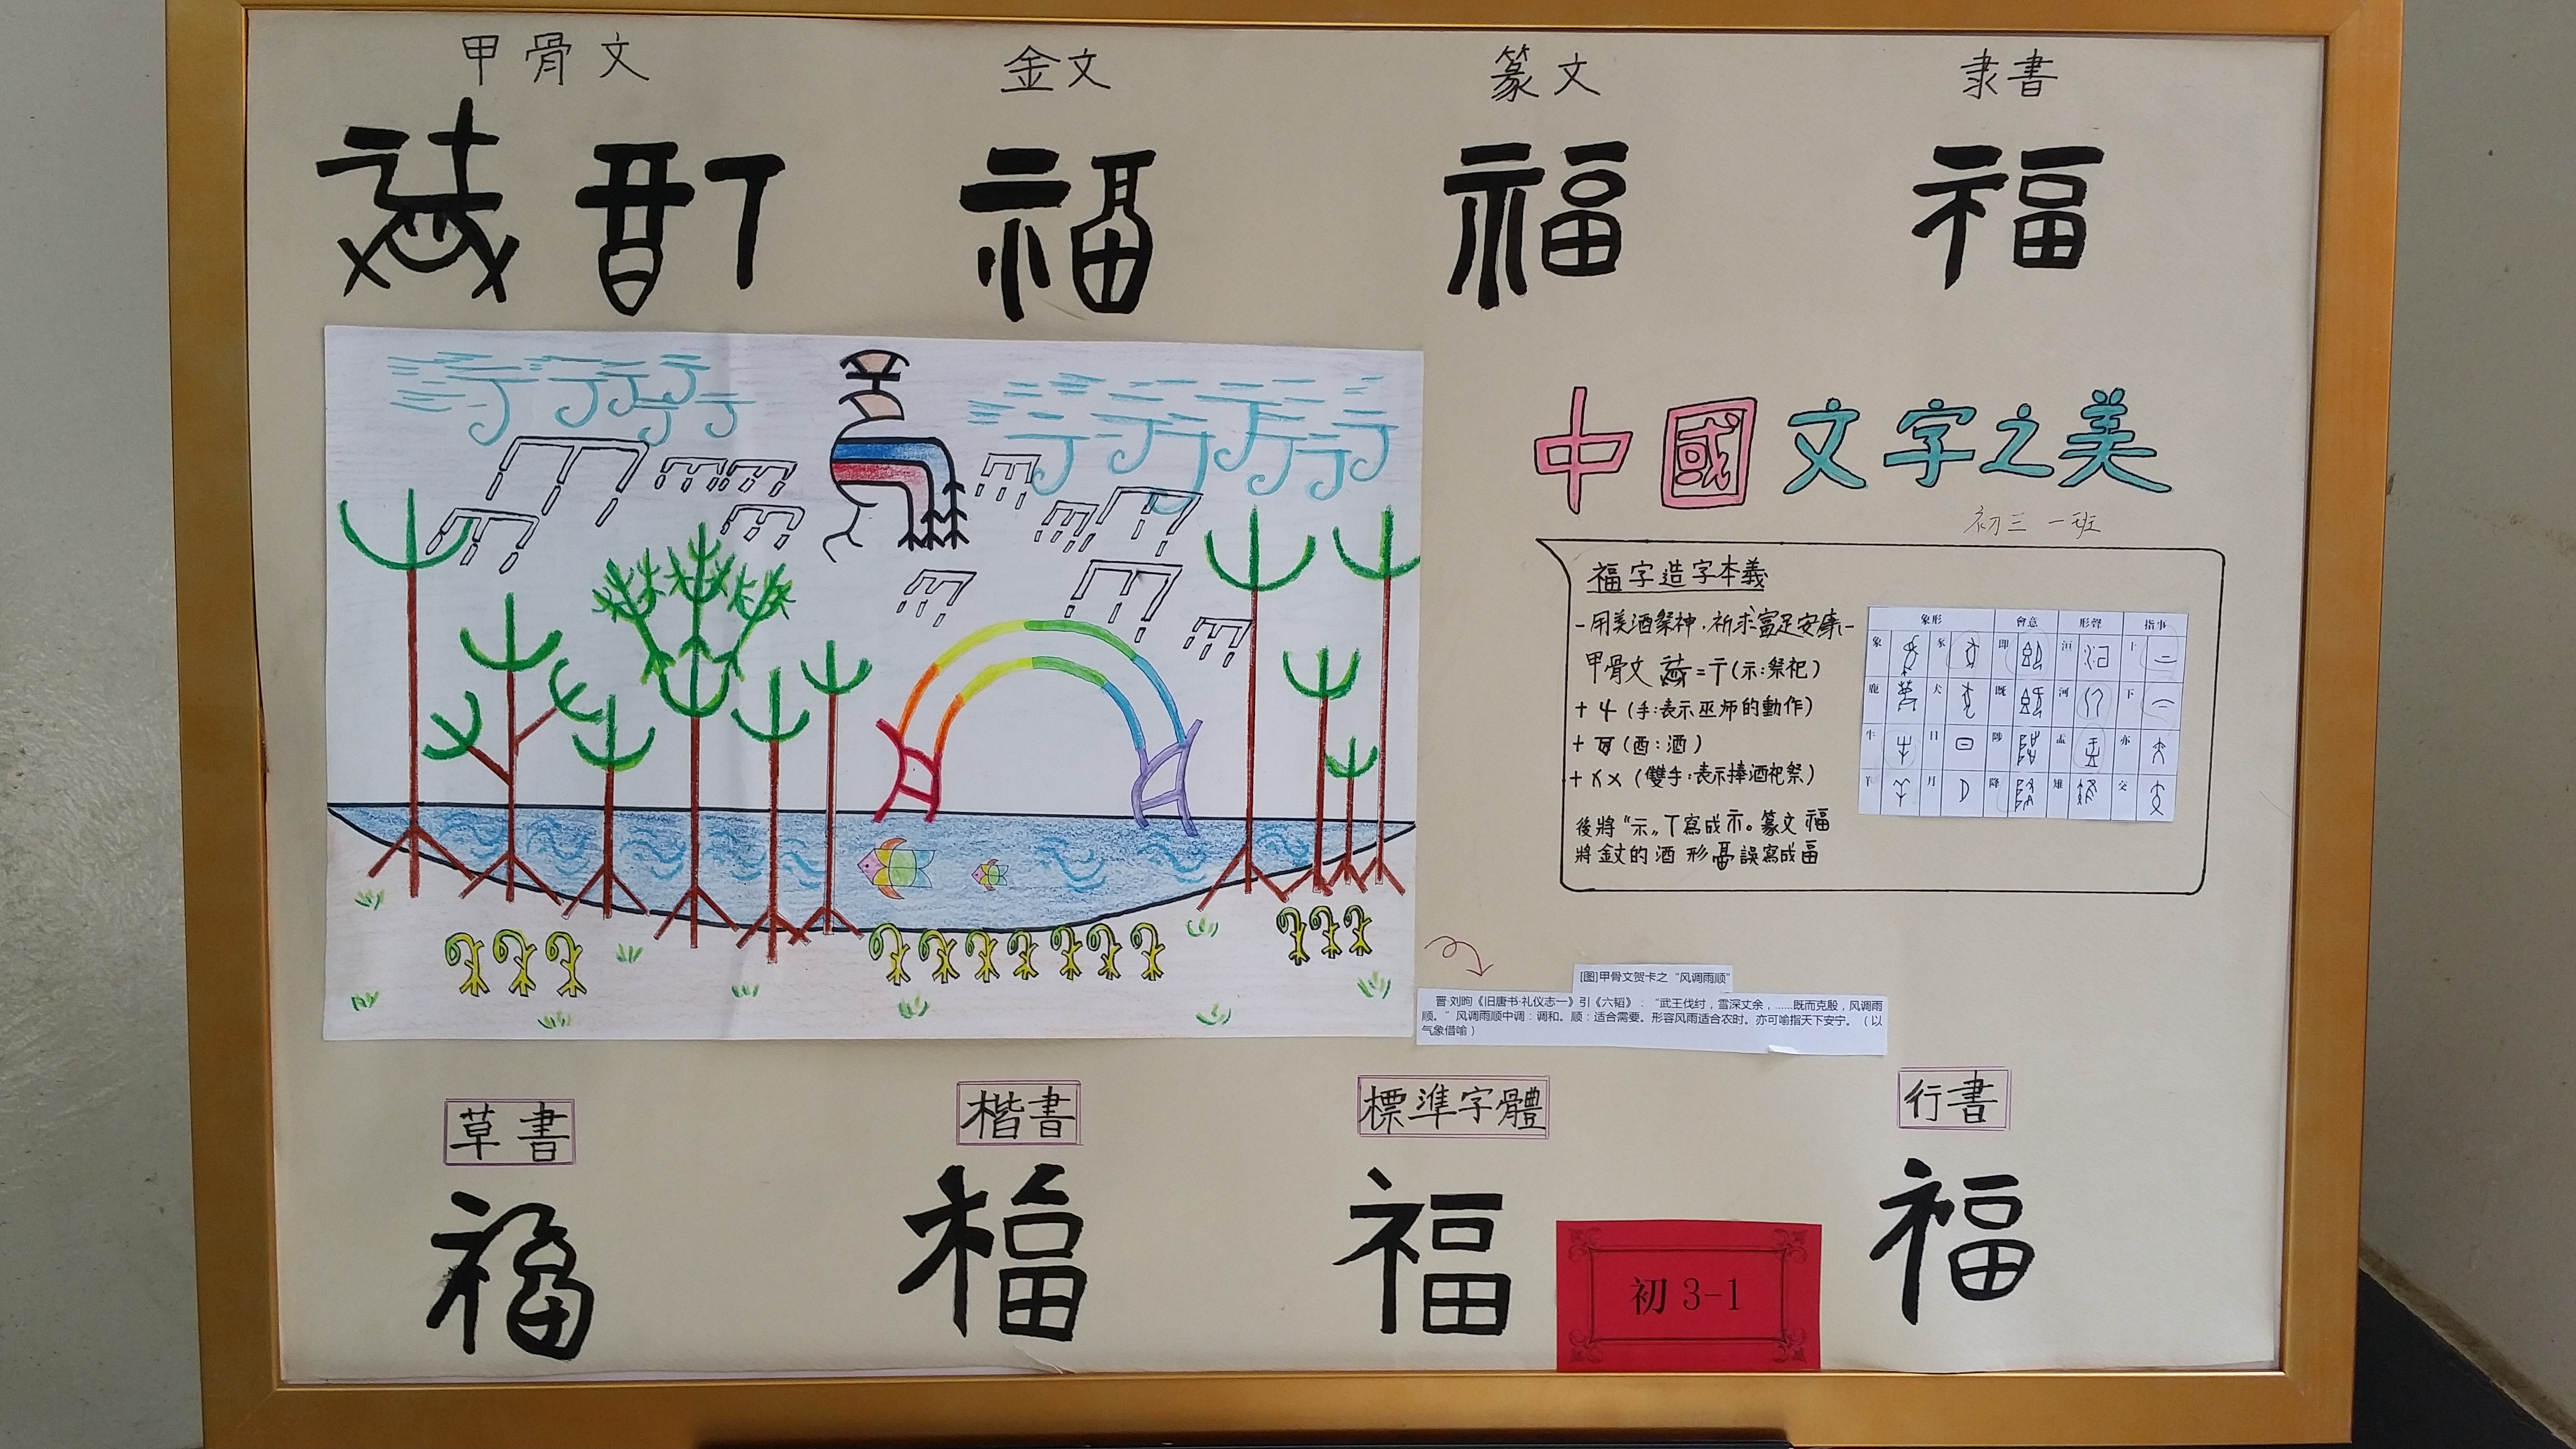 甲骨文
金文
篆文
隶書
福
福
福
中國文字之美
初三 一班
福字造字本義
-用美酒祭神，祈求富足安康-
甲骨文 =〒(示:祭祀)
+ (手:表示巫师的動作)
+ (酉:酒)
+ (雙手:表示捧酒祀祭)
後將“示„丅寫成示。篆文福
將金文的酒形畐誤寫成畐
象形 會意 形聲 指事
象 豕 即 洹 上
鹿 犬 既 河 下
牛 日 陟 盂 亦
羊 月 降 雉 交
[图]甲骨文贺卡之“风调雨顺”
晋·刘昫《旧唐书·礼仪志一》引《六韬》：“武王伐纣，雪深丈余，……既而克殷，风调雨
顺。”风调雨顺中调：调和。顺：适合需要。形容风雨适合农时。亦可喻指天下安宁。（以
气象借喻）
草書
楷書
標準字體
行書
福
福
福
福
初 3-1